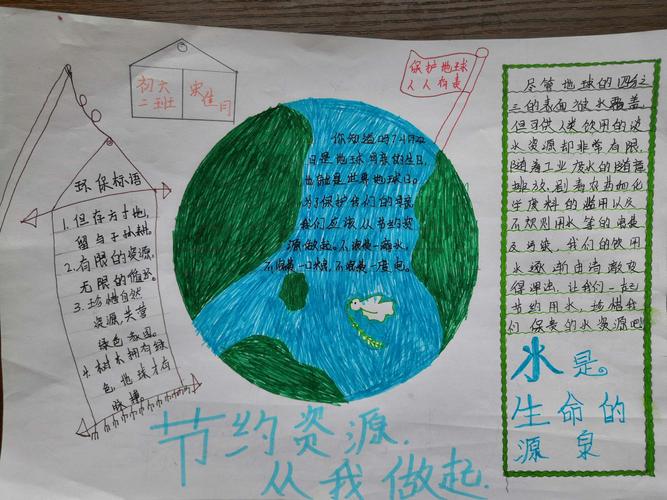 初六
二班
宋佳月
保护地球
人人有责
环保标语
1. 但存方寸地,
留与子孙耕。
2. 有限的资源,
无限的循环。
3. 珍惜自然
资源,共营
绿色家园。
4. 树木拥有绿
色,地球才有
脉搏。
你知道吗?4月22
日是地球母亲的生日,
也就是世界地球日。
为了保护我们的家园
我们应该从节约资
源做起。不浪费一滴水,
不浪费一口粮,不浪费一度电。
尽管地球的四分之
三的表面被水覆盖
但可供人类饮用的淡
水资源却非常有限,
随着工业废水的随意
排放,
农药和化
学废料的滥用以及
不规则用水等的浪费
及污染,我们的饮用
水逐渐由清澈变
得浑浊,让我们一起
节约用水,珍惜我
们宝贵的水资源吧
水是。
生命的
源泉
节约资源,
从我做起.